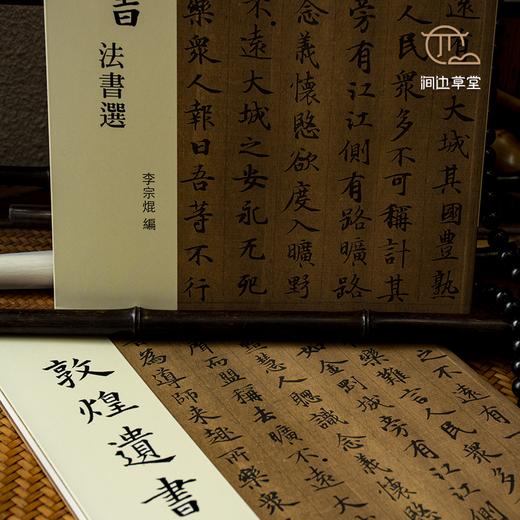 涧边草堂
遠有
大城其國豊熟
人民衆多不可稱計其
旁有江江側有路曠路
念義懷愍欲度入曠野
不遠大城之安永无死
樂衆人報曰吾等不行
法書選
李宗焜 編
之不遠有一
樂難言人民衆多
如金剛城旁有江江
慧人聰識念義懷愍
而盟稱去曠不遠大
為導師来趣一所樂衆
敦煌遺書